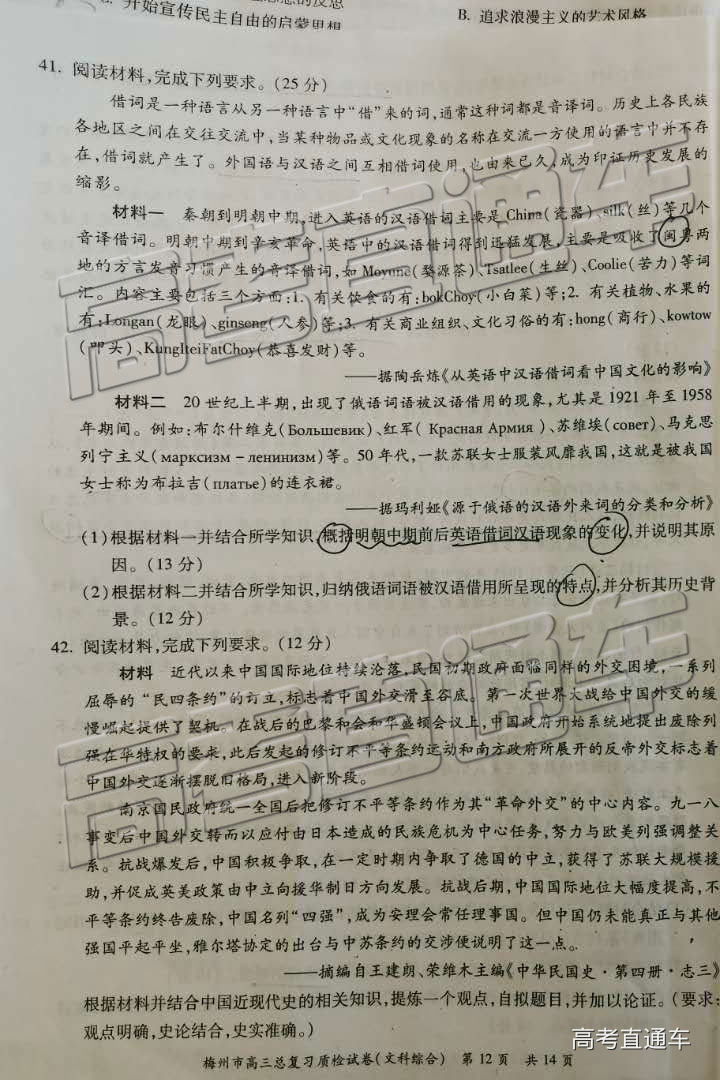 开始宣传民主自由的启蒙思想
B. 追求浪漫主义的艺术风格
41. 阅读材料,完成下列要求。(25 分)
借词是一种语言从另一种语言中“借”来的词,通常这种词都是音译词。历史上各民族
各地区之间在交往交流中,当某种物品或文化现象的名称在交流一方使用的语言中并不存
在,借词就产生了。外国语与汉语之间互相借词使用,也由来已久,成为印证历史发展的
缩影。
材料一 秦朝到明朝中期,进入英语的汉语借词主要是 China(瓷器)、silk(丝)等几个
音译借词。明朝中期到辛亥革命,英语中的汉语借词得到迅猛发展,主要是吸收了闽粤两
地的方言发音习惯产生的音译借词,如 Moyune(婺源茶)、Tsatlee(生丝)、Coolie(苦力)等词
汇。内容主要包括三个方面:1. 有关饮食的有:bokChoy(小白菜)等;2. 有关植物、水果的
有:Longan(龙眼)、ginseng(人参)等;3. 有关商业组织、文化习俗的有:hong(商行)、kowtow
(叩头)、KungHeiFatChoy(恭喜发财)等。
——据陶岳炼《从英语中汉语借词看中国文化的影响》
材料二 20 世纪上半期,出现了俄语词语被汉语借用的现象,尤其是 1921 年至 1958
年期间。例如:布尔什维克(Большевик)、红军( Красная Армия )、苏维埃(совет)、马克思
列宁主义(марксизм - ленинизм)等。50 年代,一款苏联女士服装风靡我国,这就是被我国
女士称为布拉吉(платье)的连衣裙。
——据玛利娅《源于俄语的汉语外来词的分类和分析》
(1)根据材料一并结合所学知识,概括明朝中期前后英语借词汉语现象的变化,并说明其原
因。(13 分)
(2)根据材料二并结合所学知识,归纳俄语词语被汉语借用所呈现的特点,并分析其历史背
景。(12 分)
42. 阅读材料,完成下列要求。(12 分)
材料 近代以来中国国际地位持续沦落,民国初期政府面临同样的外交困境,一系列
屈辱的“民四条约”的订立,标志着中国外交滑至谷底。第一次世界大战给中国外交的缓
慢崛起提供了契机。在战后的巴黎和会和华盛顿会议上,中国政府开始系统地提出废除列
强在华特权的要求,此后发起的修订不平等条约运动和南方政府所展开的反帝外交标志着
中国外交逐渐摆脱旧格局,进入新阶段。
南京国民政府统一全国后把修订不平等条约作为其“革命外交”的中心内容。九一八
事变后中国外交转而以应付由日本造成的民族危机为中心任务,努力与欧美列强调整关
系。抗战爆发后,中国积极争取,在一定时期内争取了德国的中立,获得了苏联大规模援
助,并促成英美政策由中立向援华制日方向发展。抗战后期,中国国际地位大幅度提高,不
平等条约终告废除,中国名列“四强”,成为安理会常任理事国。但中国仍未能真正与其他
强国平起平坐,雅尔塔协定的出台与中苏条约的交涉便说明了这一点。
——摘编自王建朗、荣维木主编《中华民国史·第四册·志三》
根据材料并结合中国近现代史的相关知识,提炼一个观点,自拟题目,并加以论证。(要求:
观点明确,史论结合,史实准确。)
高考直通车
梅州市高三总复习质检试卷(文科综合) 第 12 页 共 14 页
高考直通车
高考直通车